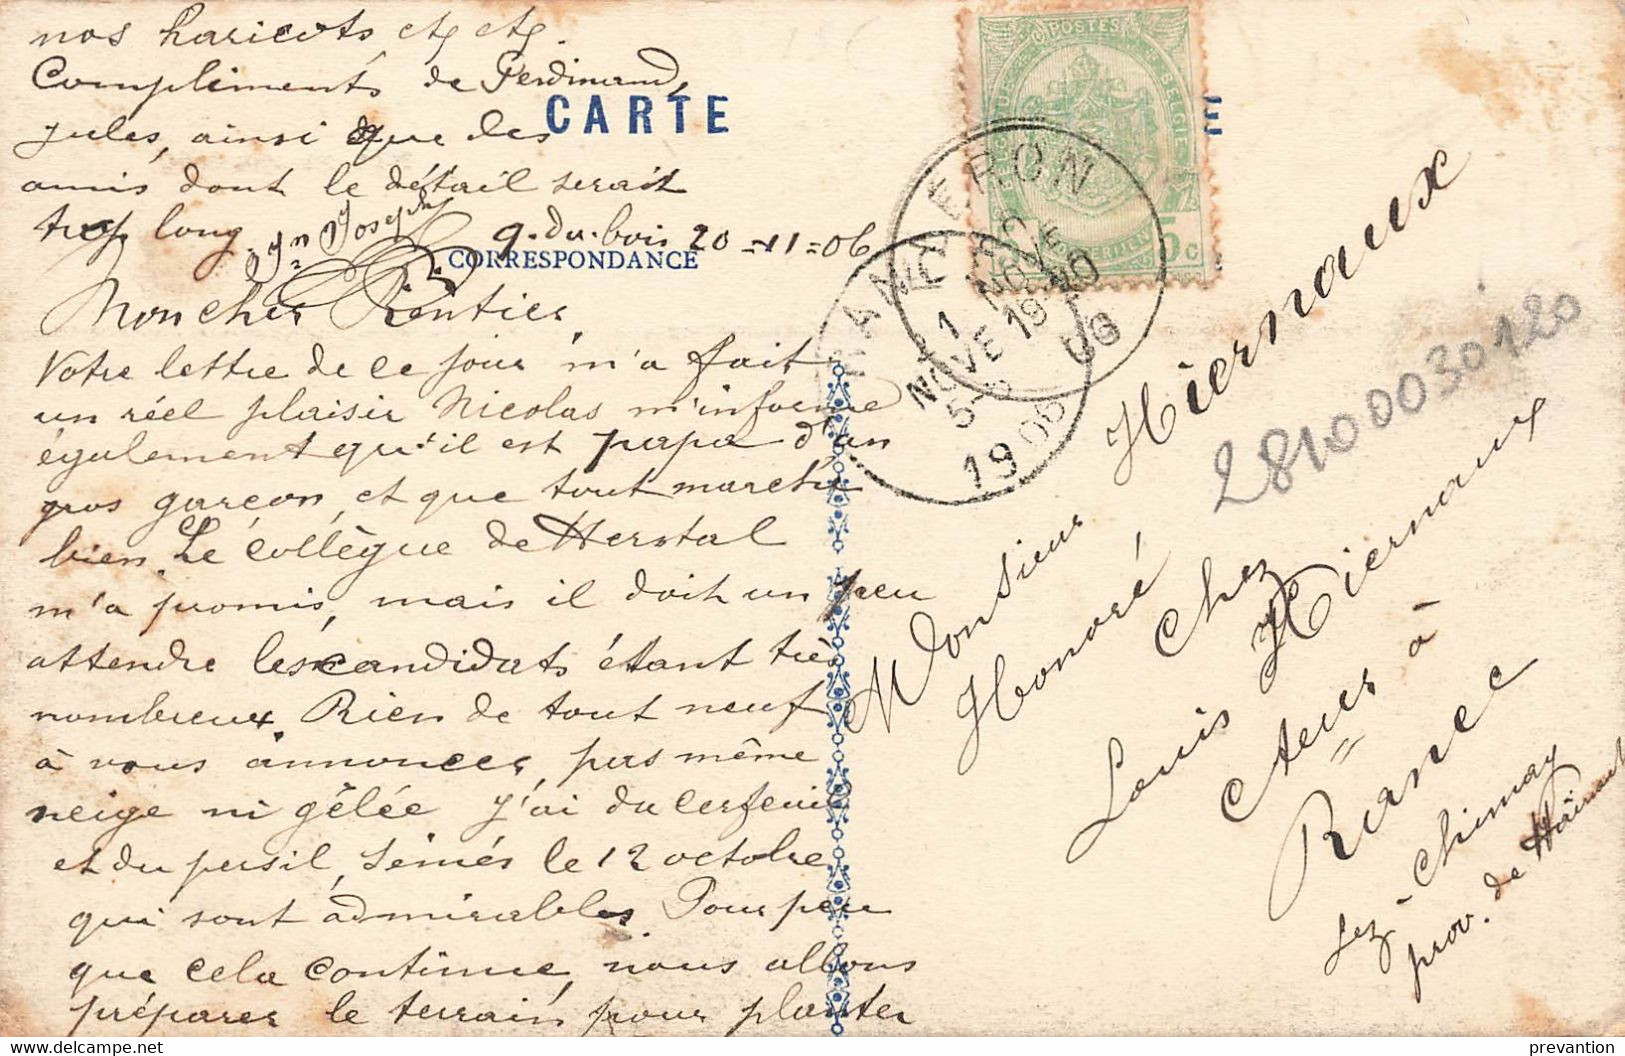 nos haricots etc etc.
Compliments de Ferdinand,
jules, ainsi que des
CARTE
amis dont le détail serait
trop long
Jn Joseph
9. du. bois 20 = 11 = 06
CORRESPONDANCE
Mon cher Rentier,
Votre lettre de ce jour m'a fait
un réel plaisir Nicolas m'informe
également qu'il est papa d'un
gros garçon, et que tout marche
bien. Le collègue de Herstal
m'a promis, mais il doit un peu
attendre les candidats étant très
nombreux. Rien de tout neuf
à vous annoncer, pas même
neige ni gêlée j'ai du cerfeuil
et du persil, semés le 12 octobre
qui sont admirables. Pour peu
que cela continue, nous allons
préparer le terrain pour planter
POSTES
BELGIQUE
5c
RANCE
1 NOVE
1906
Monsieur Hiernaux
Honoré
chez
Louis Hiernaux
à
Rance
Lez-Chimay
prov. de Hainaut
28100030120
prevantion